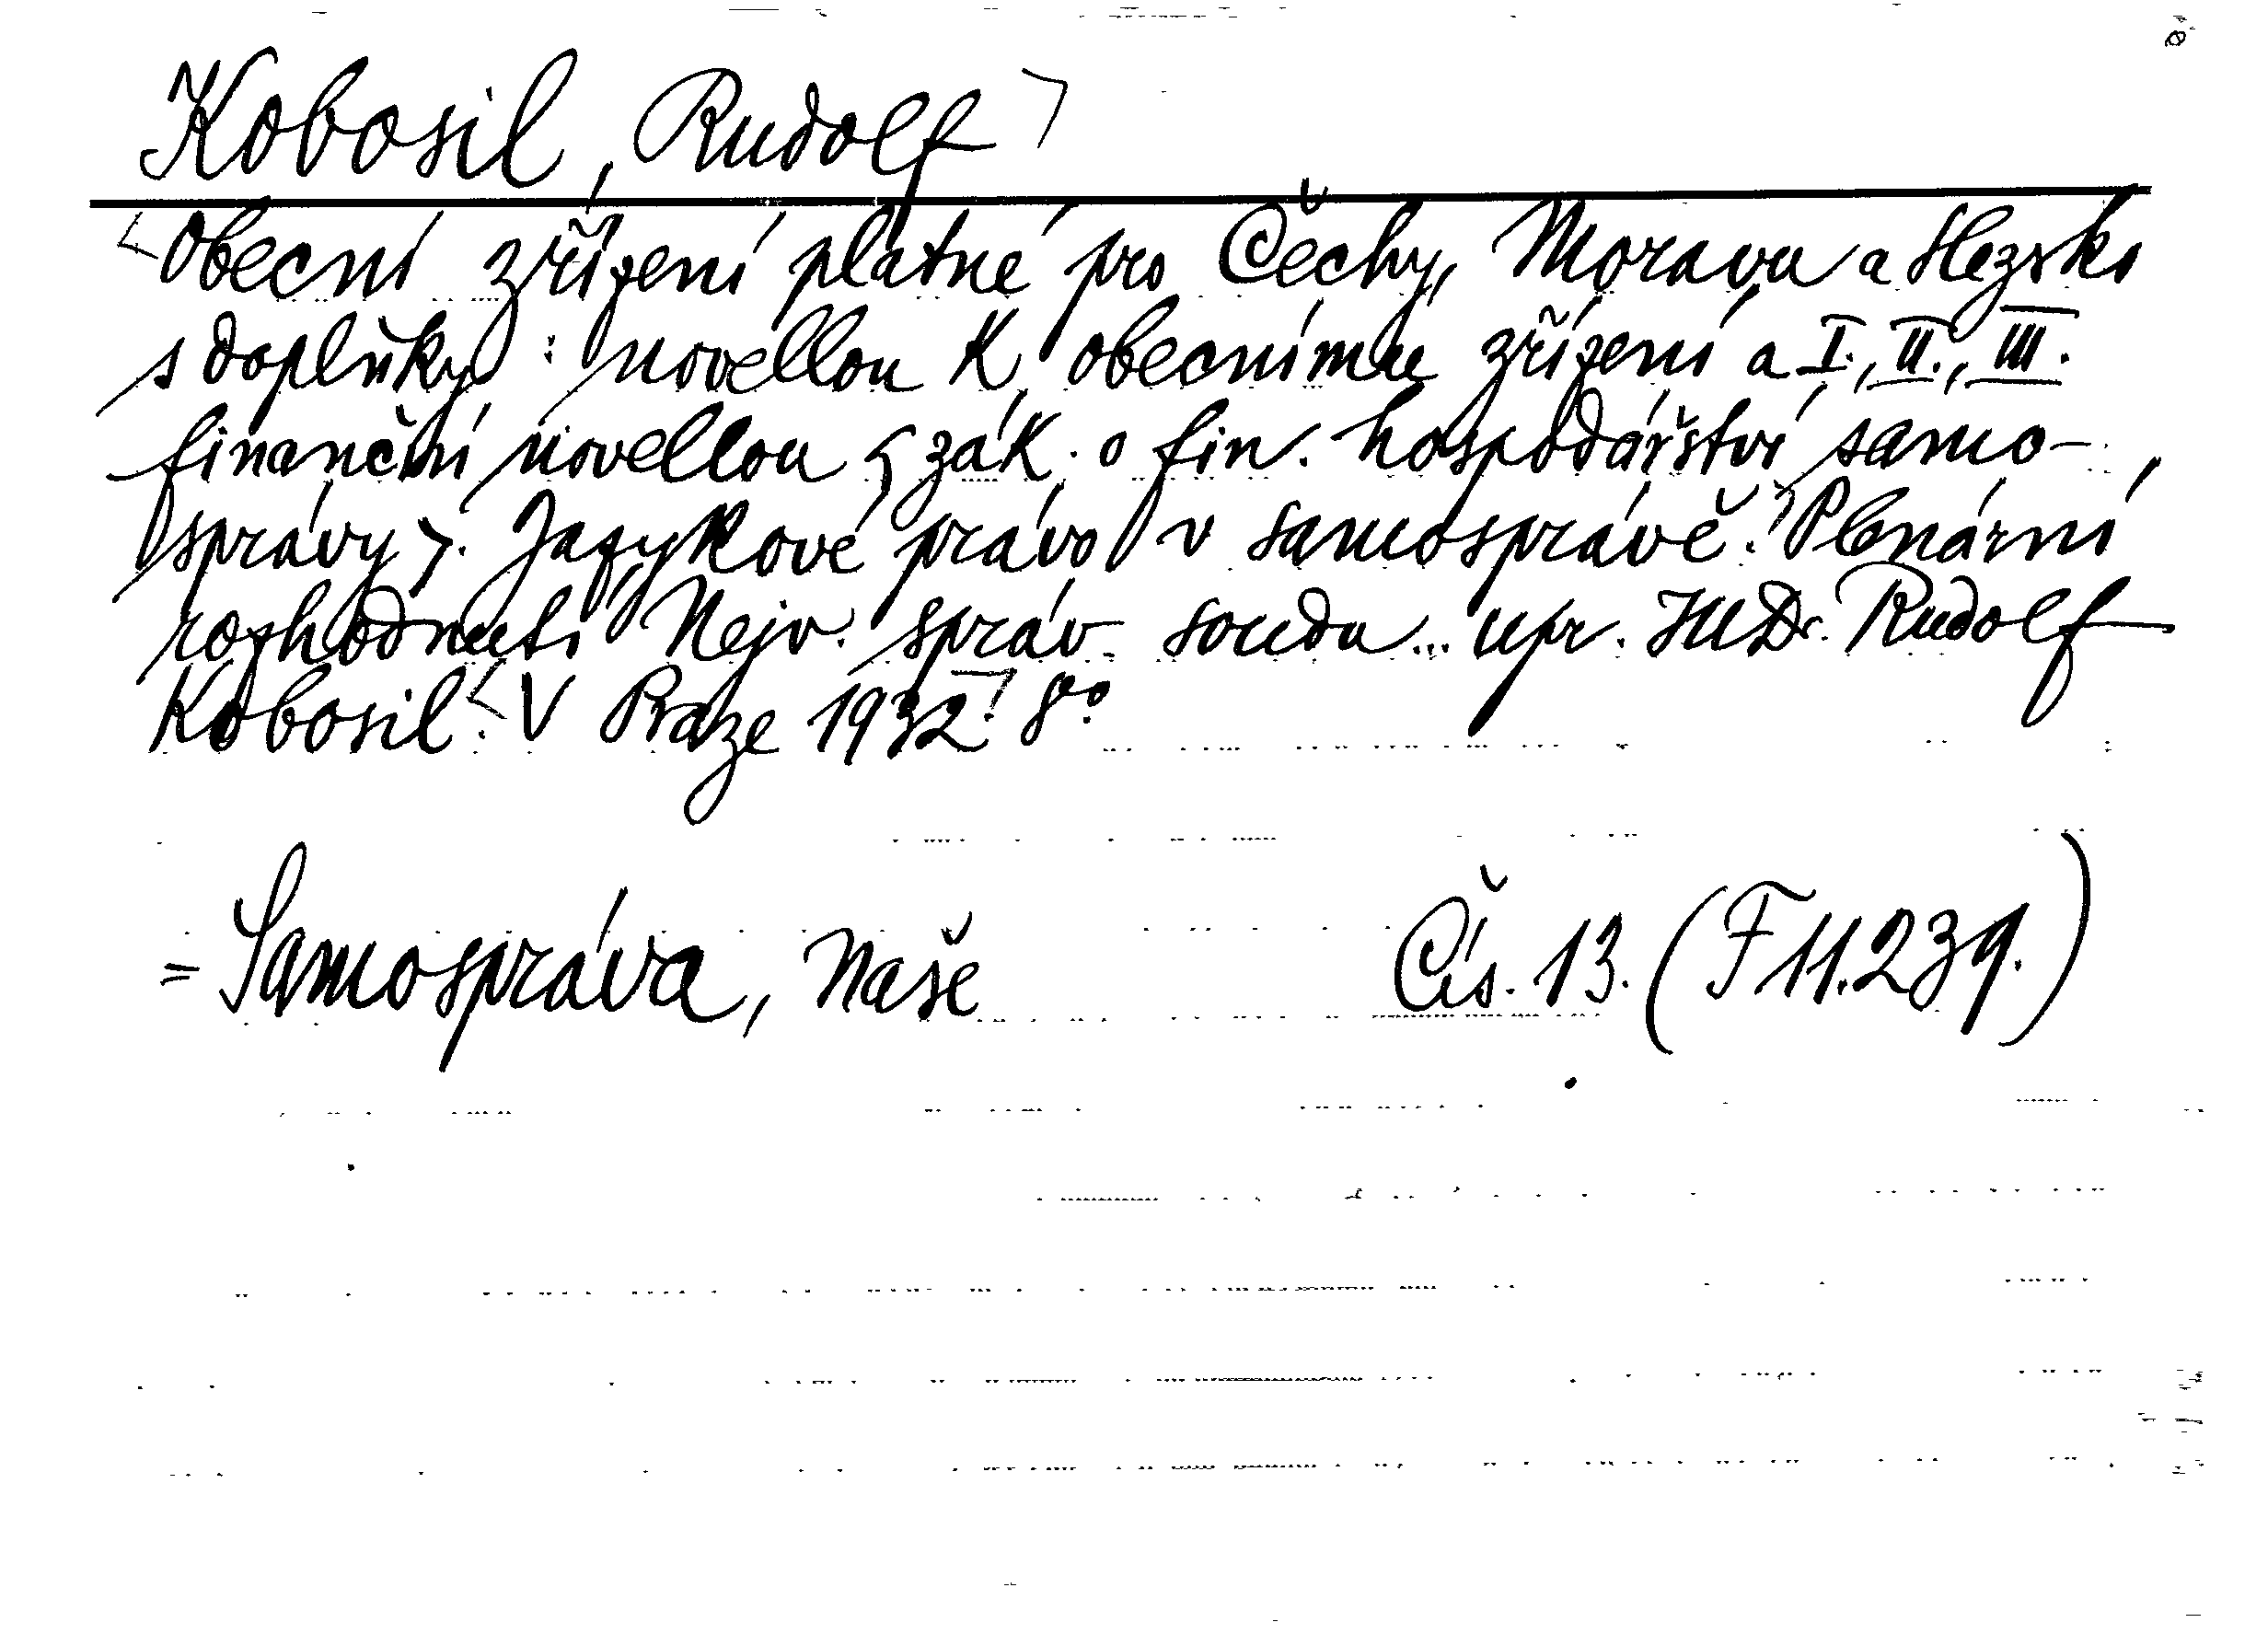 Kobosil, Rudolf
Obecní zřízení platné pro Čechy, Moravu a Slezsko
s doplňky: novellou k obecnímu zřízení a I., II., III.
finanční novellou (zák. o fin. hospodářství samo-
správy). Jazykové právo v samosprávě. Plenární
rozhodnutí Nejv. správ. soudu... upr. JUDr. Rudolf
Kobosil. V Praze 1932. 8°.
= Samospráva, Naše Čís. 13. (F 11.239.)